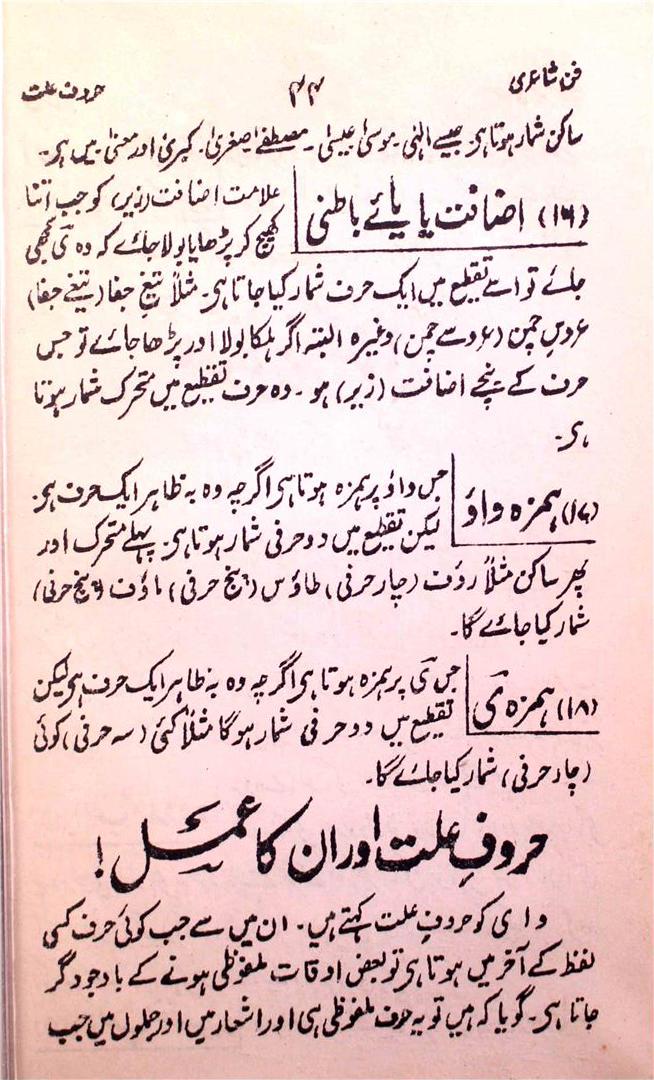 فن شاعری ۴۴ حروف علت
ساکن شمار ہوتا ہی۔ جیسے الٰہی۔ موسیٰ عیسیٰ۔ مصطفےٰ اصغریٰ۔ کبریٰ اور معنیٰ میں ہی۔
(۱۶) اضافت یا یائے باطنی
علامت اضافت (زیر) کو جب اتنا
کھینچ کر پڑھا یا بولا جائے کہ وہ ی سمجھی
جائے تو اسے تقطیع میں ایک حرف شمار کیا جاتا ہی۔ مثلاً تیغِ جفا (تیغے جفا)
عروسِ چمن (عروسے چمن) وغیرہ البتہ اگر ہلکا بولا اور پڑھا جائے تو جس
حرف کے نیچے اضافت (زیر) ہو۔ وہ حرف تقطیع میں متحرک شمار ہوتا
ہی۔
(۱۷) ہمزہ واؤ
جس واؤ پر ہمزہ ہوتا ہی اگرچہ وہ بہ ظاہر ایک حرف ہی۔
لیکن تقطیع میں دو حرفی شمار ہوتا ہی۔ پہلے متحرک اور
پھر ساکن مثلاً رؤف (چار حرفی) طاؤس (پنج حرفی) ماؤف (پنج حرفی)
شمار کیا جائے گا۔
(۱۸) ہمزہ ی
جس ی پر ہمزہ ہوتا ہی اگرچہ وہ بہ ظاہر ایک حرف ہی لیکن
تقطیع میں دو حرفی شمار ہوگا مثلاً کئی (سہ حرفی) کوئی
(چار حرفی) شمار کیا جائے گا۔
حروفِ علت اور ان کا عمل!
و ا ی کو حروفِ علت کہتے ہیں۔ ان میں سے جب کوئی حرف کسی
لفظ کے آخر میں ہوتا ہی تو بعض اوقات ملفوظی ہونے کے باوجود گر
جاتا ہی۔ گویا کہ ہیں تو یہ حرف ملفوظی ہی اور اشعار میں اور جملوں میں جب